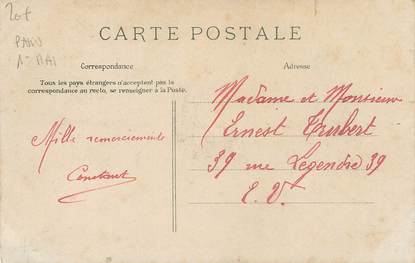 20f
CARTE POSTALE
PARIS
1er MAI
Correspondance
Adresse
Tous les pays étrangers n'acceptent pas la
correspondance au recto, se renseigner à la Poste.
Mille remerciements
Constant
Madame et Monsieur
Ernest Turbert
39 rue Legendre 39
E. V.